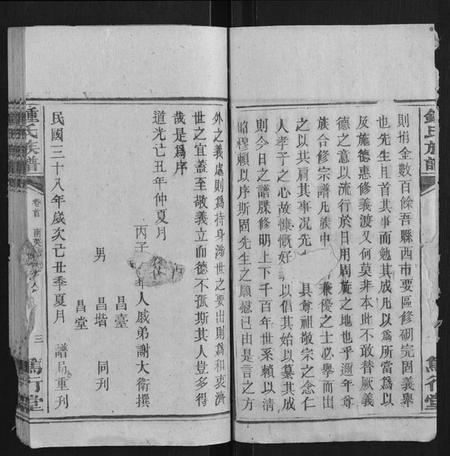 鍾氏族譜
篤行堂
則捐金數百餘吾縣西市要區修砌完固義舉
也先生且首其事而勉其成凡以爲所當爲以
反施德惠修義渡又何莫非本此不敢替厥義
德之意以流行於日用周旋之地也乎邇年尊
族合修宗譜凡族中 兼優之士必舉而出
之以共肩其事况先 具尊祖敬宗之念仁
人孝子之心故慷慨好 以倡其始以纂其成
則今日之譜牒修明上下千百年世系賴以清
昭穆賴以序斯固先生之願慰已由是言之方
外之義處則爲持身涉世之要出則爲和衷濟
世之宜蓋至敬義立而德不孤斯其人豈多得
哉是爲序
道光己丑年仲夏月
丙子 人戚弟謝大衛撰
昌臺
男 昌堦 同刋
昌堂
民國三十八年歲次己丑季夏月 譜局重刋
鍾氏族譜
卷首
三
篤行堂